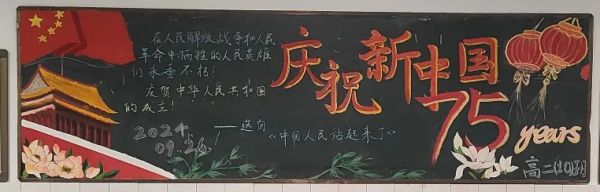 在人民解放战争和人民
革命中牺牲的人民英雄
们永垂不朽！
庆贺中华人民共和国
的成立！
——选自
《中国人民站起来了》
2024.
09.26.
庆祝新中国
75
years
高二(10)班